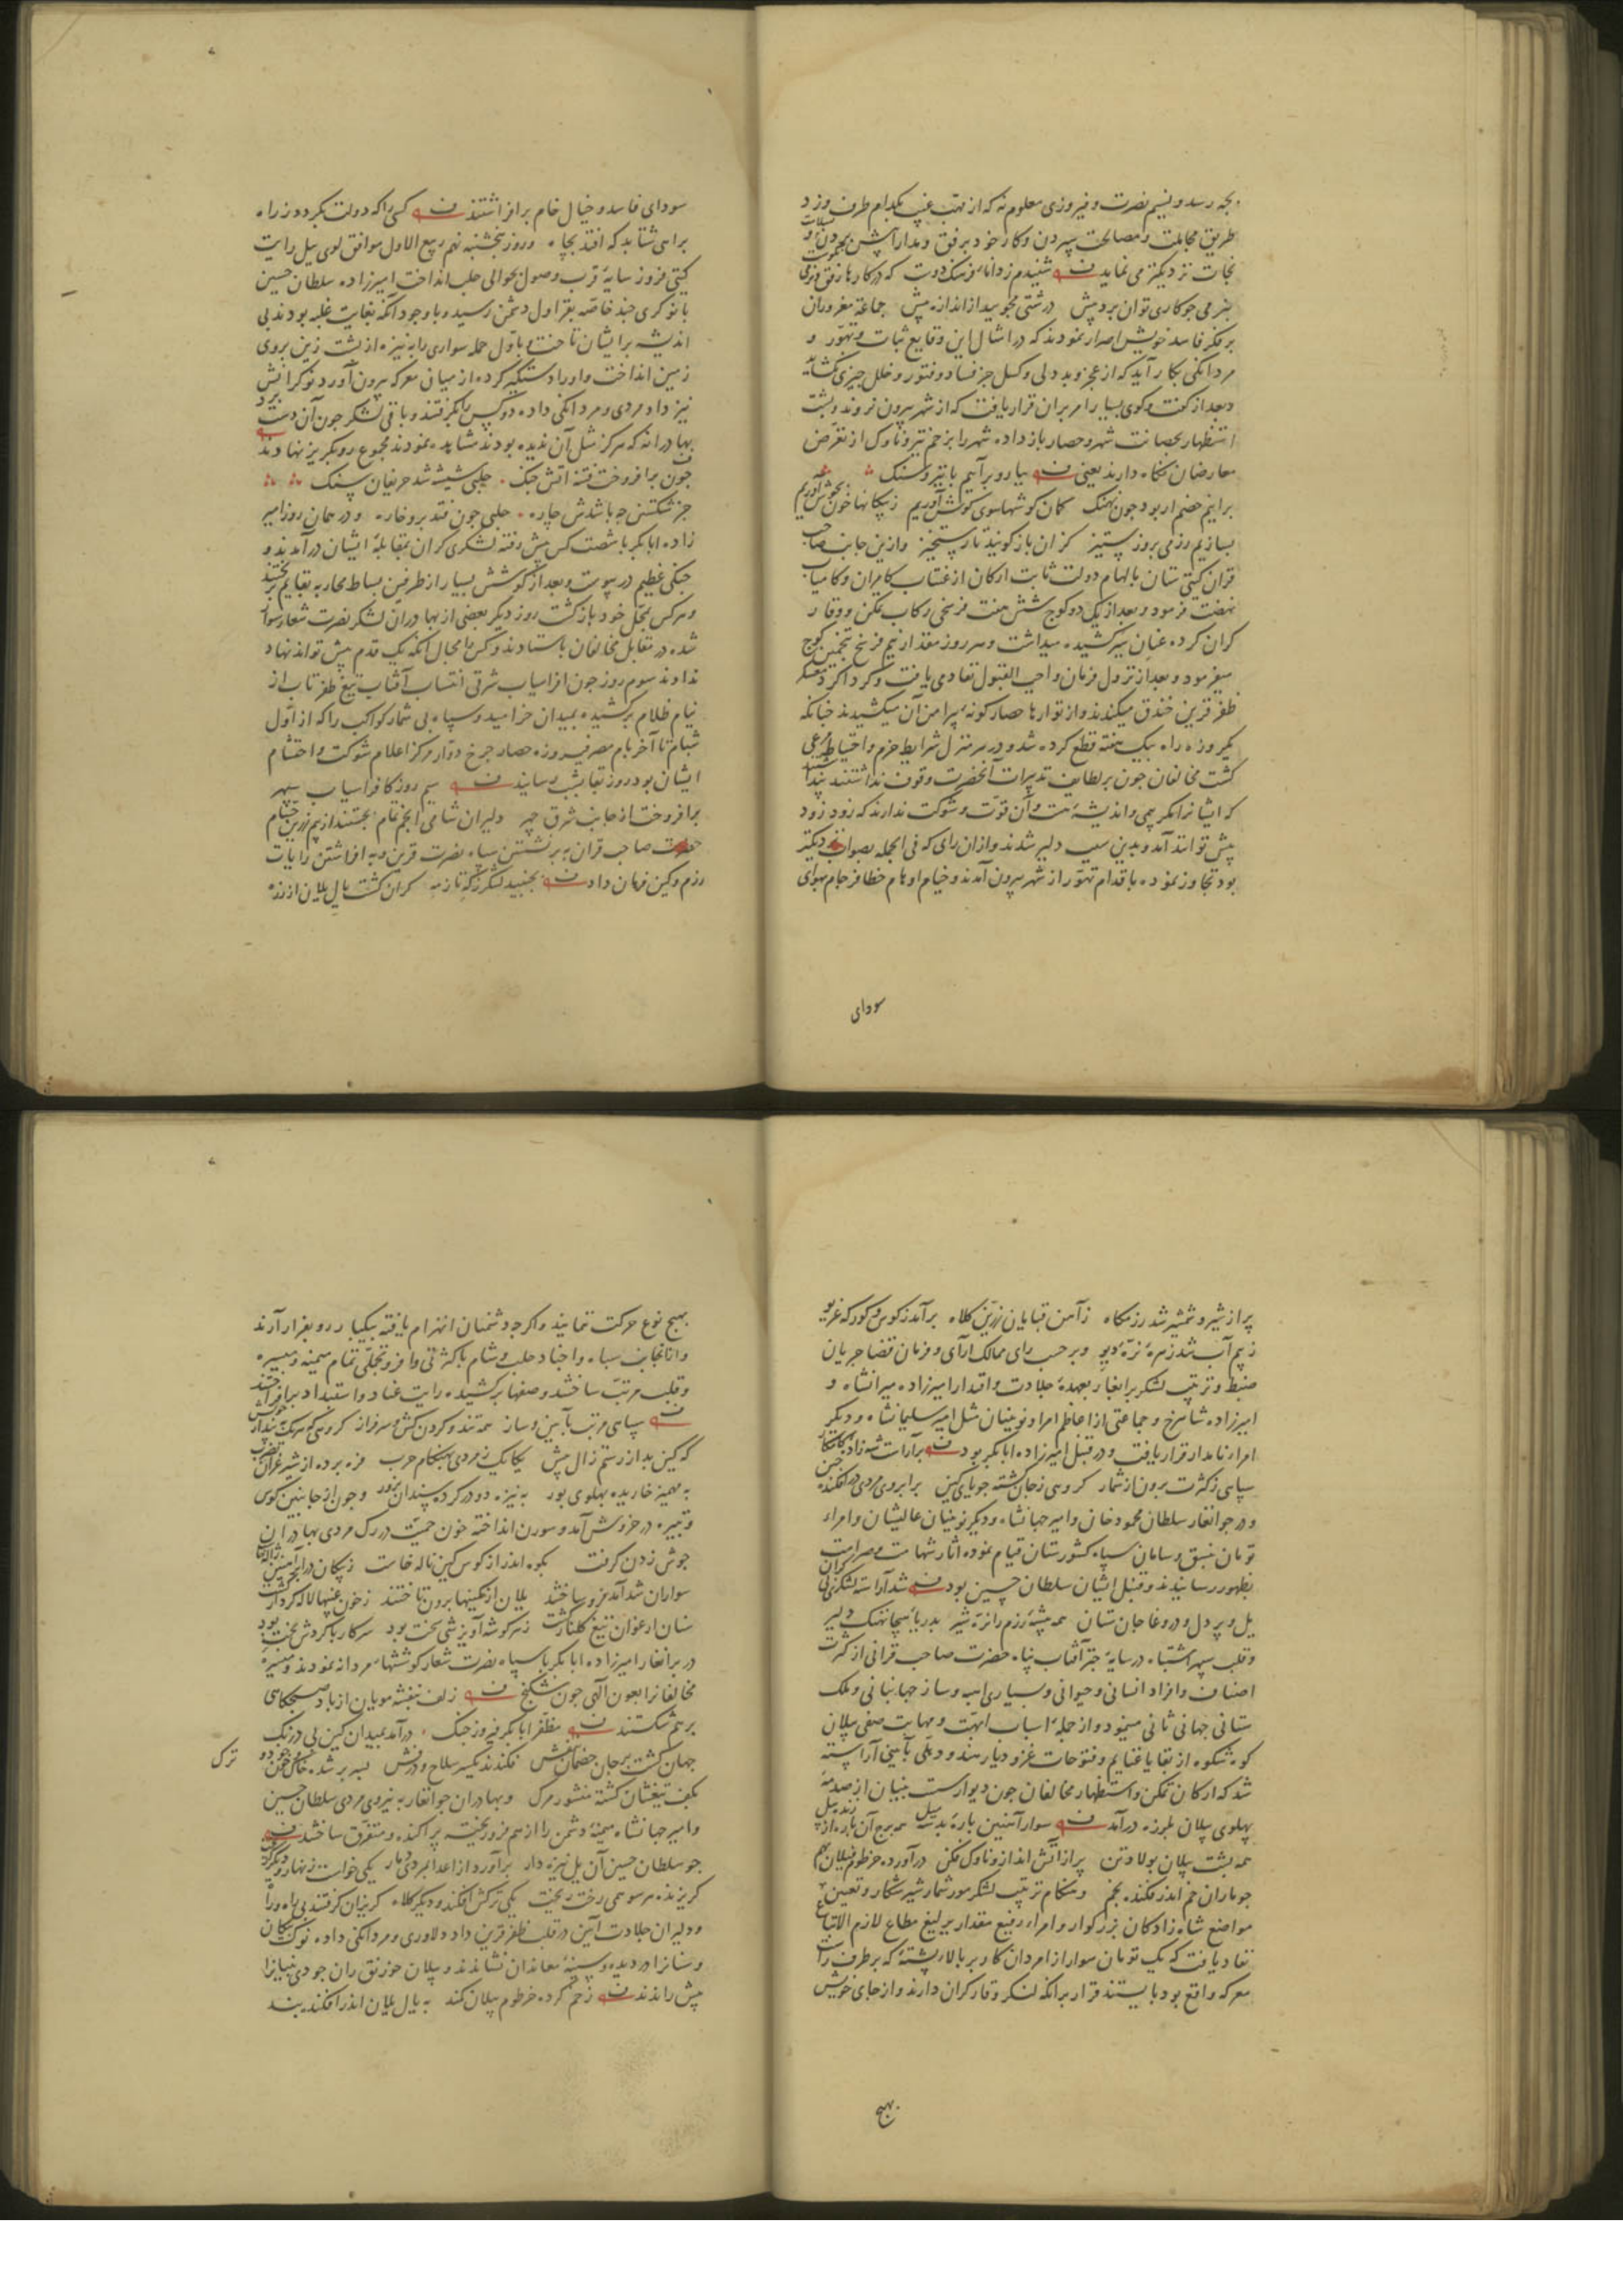 بچه رسد و نسیم نصرت و فیروزی معلوم نه که از مهب غیب بکدام طرف وزد
طریق مجاملت و مصالحت سپردن و کار خود برفق و مدارا پیش بردن
نجات نزدیکتر می نماید شنیدم ز دانای فرهنک دوست که در کارها رفق و نرمی نکوست
بنرمی جو کاری توان برد پیش درشتی مجویید از اندازه پیش جماعة مغروران
بر فکر فاسد خویش اصرار نمودند که در امثال این وقایع ثبات و تهور و
مردانکی بکار آید که از عجز و بددلی و کسل جز فساد و فتور و خلل جیزی نکشاید
و بعد از کفت و کوی بسیار امر بران قرار یافت که از شهر بیرون نروند و پشت
استظهار بحصانت شهر و حصار باز داده شهر را بزخم تیر و ناوک از تعرض
معارضان نکاه دارند یعنی بیا رو بر آییم با تیر و سنک
برایم خصم ار بود جون نهنک کمان کوشها سوی کوش آوریم ز پیکانها خون بجوش آوریم
بسازیم رزمی بروز ستیز کزان باز کویند تا رستخیز و ازین جانب صاحب
قران کیتی ستان بالهام دولت ثابت ارکان از عنتاب کامران و کامیاب
نهضت فرمود و بعد از یک دو کوج شش هفت فرسخی رکاب تمکن و وقار
کران کرده عنان سبک کشیده میداشت و هر روز مقدار نیم فرسخ بتخمین کوج
میفرمود و بعد از نزول فرمان واجب القبول نفاد می یافت و کرداکرد معسکر
ظفر قرین خندق میکندند و از تورها حصار کونه پیرامن آن میکشیدند جنانکه
یکروزه راه بیک هفته قطع کرده شد و در هر منزل شرایط حزم و احتیاط مرعی
کشت مخالفان جون بر لطایف تدبیرات آنحضرت وقوف نداشتند پنداشتند
که ایشانرا مکر بیمی و اندیشه هست و آن قوت و شوکت ندارند که زود زود
پیش توانند آمد و بدین سبب دلیر شدند و ازان رای که فی الجمله بصواب نزدیکتر
بود تجاوز نموده باقدام تهور از شهر بیرون آمدند و خیام اوهام خطا فرجام بهوای
سودای
سودای فاسد و خیال خام بر افراشتند کسی را که دولت بکردد ز راه
براهی شتابد که افتد بچاه و روز پنجشنبه نهم ربیع الاول موافق لوی ییل رایت
کیتی فروز سایهٔ قرب وصول بحوالی حلب انداخت امیرزاده سلطان حسین
با نوکری جند خاصه بقراول دشمن رسید و با وجود آنکه بغایت غلبه بودند بی
اندیشه بر ایشان تاخت و باول حمله سواری را بنیزه از پشت زین بروی
زمین انداخت و او را دستکیر کرده از میان معرکه بیرون آورد نوکرانش
نیز داد مردی و مردانکی داده دو کس را بکرفتند و باقی لشکر جون آن دستبرد
بهادرانه که هرکز مثل آن ندیده بودند مشاهده نمودند مجموع رو بکریز نهادند
جون برافروخت فتنه آتش جنک حلبی شیشه شد حریفان سنک
جز شکستن جه باشدش جاره حلبی جون فتد بر و خاره و در همان روز امیر
زاده ابابکر با شصت کس پیش رفته لشکری کران بمقابلهٔ ایشان درآمدند و
جنکی عظیم در پیوست و بعد از کوشش بسیار از طرفین بساط محاربه بقایم برجیدند
و هر کس بمحل خود باز کشت روز دیکر بعضی از بهادران لشکر نصرت شعار سوار
شده در مقابل مخالفان باستادند و کس را مجال آنکه یک قدم پیش تواند نهاد
نداوند سوم روز جون افراسیاب شرقی انتساب آفتاب تیغ ظفر تاب از
نیام ظلام برکشیده بمیدان خرامید و سپاه بی شمار کواکب را که از اول
شبام تا آخر بام مصر فیروزه حصار جرخ دوار مرکز اعلام شوکت و احتشام
ایشان بود روز بقا بشب رسانید سیم روز کافراسیاب سپهر
برافروخت از جانب شرق جهر دلیران شامی انجم تمام بجستند از بیم زرین حسام
حضرت صاحب قران به برنشستن سپاه نصرت قرین و به افراشتن رایات
رزم و کین فرمان داد بجنبید لشکر کران کشت یال یلان از زره
پر از شیر و شمشیر شد رزمکاه ز آهن قبایان زرین کلاه برآمد ز کوس و کورکه غریو
ز بیم آب شد زهرهٔ نره دیو و بر حسب رای ممالک آرای و فرمان قضا جریان
ضبط و ترتیب لشکر برانغار بعهدهٔ جلادت و اقتدار امیرزاده میرانشاه و
امیرزاده شاهرخ و جماعتی از اعاظم امرا و نوینیان مثل امیر سلیمانشاه و دیکر
امراء نامدار قرار یافت و در قنبل امیرزاده ابابکر بود برآراست شهزاده کامکار
سپاهی ز کثرت برون از شمار کروهی ز جان کشته جویای کین بر ابروی مردی درافکنده جین
و در جوانغار سلطان محمود خان و امیر جهانشاه و دیکر نوینیان عالیشان و امراء
تومان بنسق و سامان سپاه کشورستان قیام نموده آثار شهامت و صرامت
بظهور رسانیدند و قنبل ایشان سلطان حسین بود شد آراسته لشکری کران
یل و پر دل و در وغا جان ستان همه بیشهٔ رزم را نره شیر بدریای هیجا نهنک دلیر
و قلب سپهر اشتباه در سایهٔ جتر آفتاب پناه حضرت صاحب قرانی از کثرت
اصناف و افراد انسانی و حیوانی و بسیاری اسب و ساز جهانبانی و ملک
ستانی جهانی ثانی مینمود و از جملهٔ اسباب ابهت و مهابت صفی پیلان
کوه شکوه از بقایا غنایم و فتوحات غزو دیار هند و دهلی بآیینی آراسته
شد که ارکان تمکن و استظهار مخالفان جون دیوار سست بنیان از صدمهٔ
پهلوی پیلان بلرزه درآمد سوار آهنین بارهٔ بر سر پیل همه برج آن باره از زنده پیل
همه پشت پیلان پولاد تن پر از آتش انداز و ناوک فکن درآورده خرطوم پیلان بهم
جو ماران خم اندر فکنده بخم و هنکام ترتیب لشکر مور شمار شیر شکار و تعیین
مواضع شاه زادکان بزرکوار و امراء رفیع مقدار یرلیغ مطاع لازم الاتباع
نفاد یافت که یک تومان سوار از مردان کار بر بالاء پشتهٔ که بر طرف راست
معرکه واقع بود بایستند قرار برانکه لنکر وقار کران دارند و از جای خویش
بهیج
بهیج نوع حرکت ننمایند و اکرجه دشمنان انهزام یافته بیکبار رو بفرار آرند
و از آنجانب سپاه و اجناد حلب و شام با کثرتی وافر و تجملی تمام میمنه و میسره
و قلب مرتب ساختند و صفها برکشیده رایت عناد و استبداد برافراختند
سپاهی مرتب بآیین و ساز همه تند و کردن کش و سرفراز
که کین بد از رستم زال پیش یکایک ز مردی بهنکام حرب
به مهمیز خاریده پهلوی بور به نیزه و جون از جانبین کوس
و نفیر در خروش آمد و سورن انداخته خون حمیت در رک مردی بهادران
جوش زدن کرفت بکوه اندر از کوس کین ناله خاست
سواران شد آمد فزون ساختند یلان از کمینها برون تاختند
سنان ارغوان تیغ کلنار کشت ز هر کوشه آویزشی سخت بود
در برانغار امیرزاده ابابکر با سپاه نصرت شعار کوششهاء مردانه نمودند و میسرهٔ
مخالفانرا بعون آلهی جون شکنج زلف بنفشه مویان از باد صبحکاهی
برهم شکستند مظفر ابابکر فیروز جنک درآمد بمیدان کین بی درنک
ترک
بکف تیغشان کشته منشور مرک و بهادران جوانغار به نیروی مردی سلطان حسین
و امیر جهانشاه میمنهٔ دشمن را از هم فرو ریخته پراکنده و متفرق ساختند
جو سلطان حسین آن یل نیزه دار برآورد از اعدا بمردی دمار یکی خواست زنهار و دیکر
کریزنده هر سو همی رخت ریخت یکی ترکش افکند و دیکر کلاه کریزان کرفتند بی راه و راه
و دلیران جلادت آیین در قلب ظفر قرین داد دلاوری و مردانکی داده نوک پیکان
و سنانرا در دیده و سینهٔ معاندان نشاندند و پیلان
پیش راندند ز خم کرده خرطوم پیلان کمند به یال یلان اندر افکنده بند